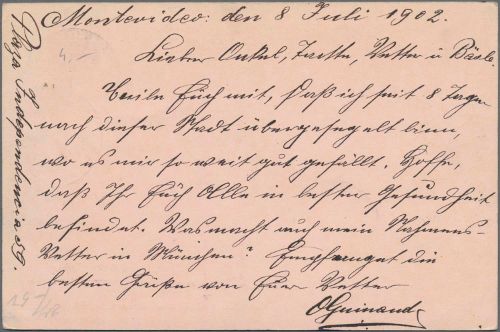 Montevideo: den 8 Juli 1902.
Lieber Onkel, Tante, Vetter u Bäsle.
Teile Euch mit, daß ich seit 8 Tagen
nach dieser Stadt übergesegelt binn,
wo es mir so weit gut gefällt. Hoffe,
daß Ihr Euch Alle in bester Gesundheit
befindet. Was macht auch mein Nahmens-
Vetter in München? Empfanget die
besten Grüße von Euer Vetter
OGuinand
Plaza Independencia 59.
4.-